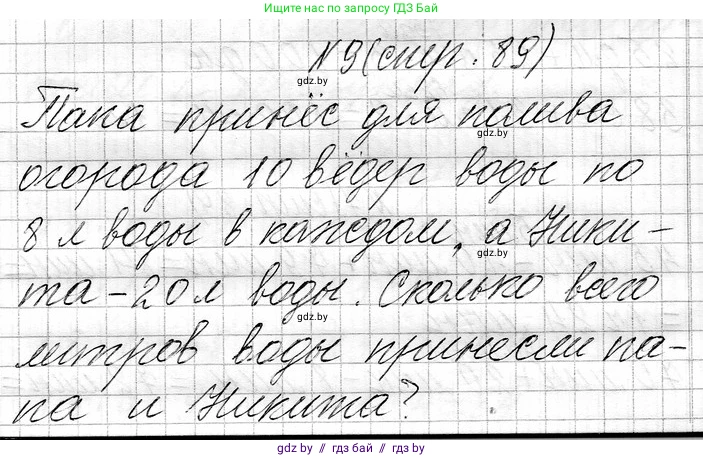 Ищите нас по запросу ГДЗ Бай
N9(стр. 89)
gdz.by
Папа принёс для полива
gdz.by
огорода 10 вёдер воды по
8 л воды в каждом, а Ники-
gdz.by
та - 20 л воды. Сколько всего
gdz.by
литров воды принесли па-
па и Никита?
gdz.by // гдз бай // гдз.бу